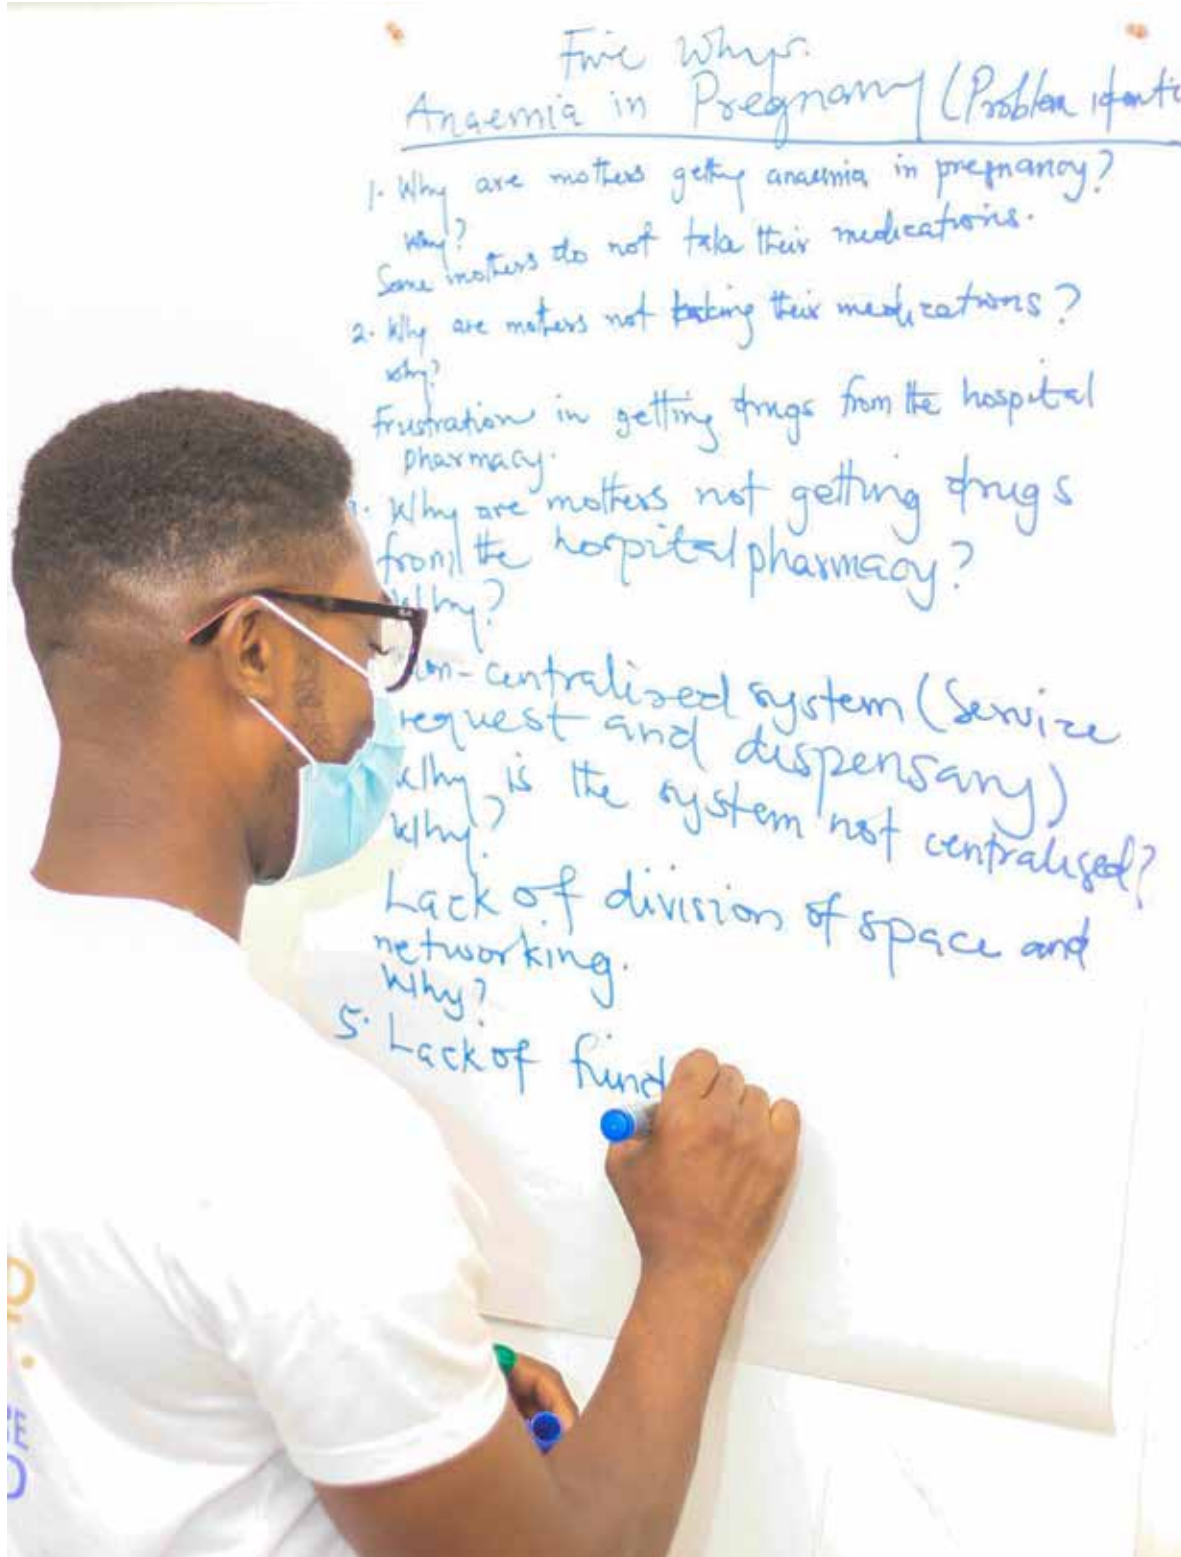 Five Whys.
Anaemia in Pregnancy (Problem
1. Why are mothers getting anaemia in pregnancy?
Why?
Some mothers do not take their medications.
2. Why are mothers not taking their medications?
Why?
Frustration in getting drugs from the hospital
pharmacy.
Why are mothers not getting drugs
from the hospital pharmacy?
Why?
-centralized system (Service
request and dispensary)
Why is the system not centralised?
Why?
Lack of division of space and
networking.
Why?
5. Lack of fund